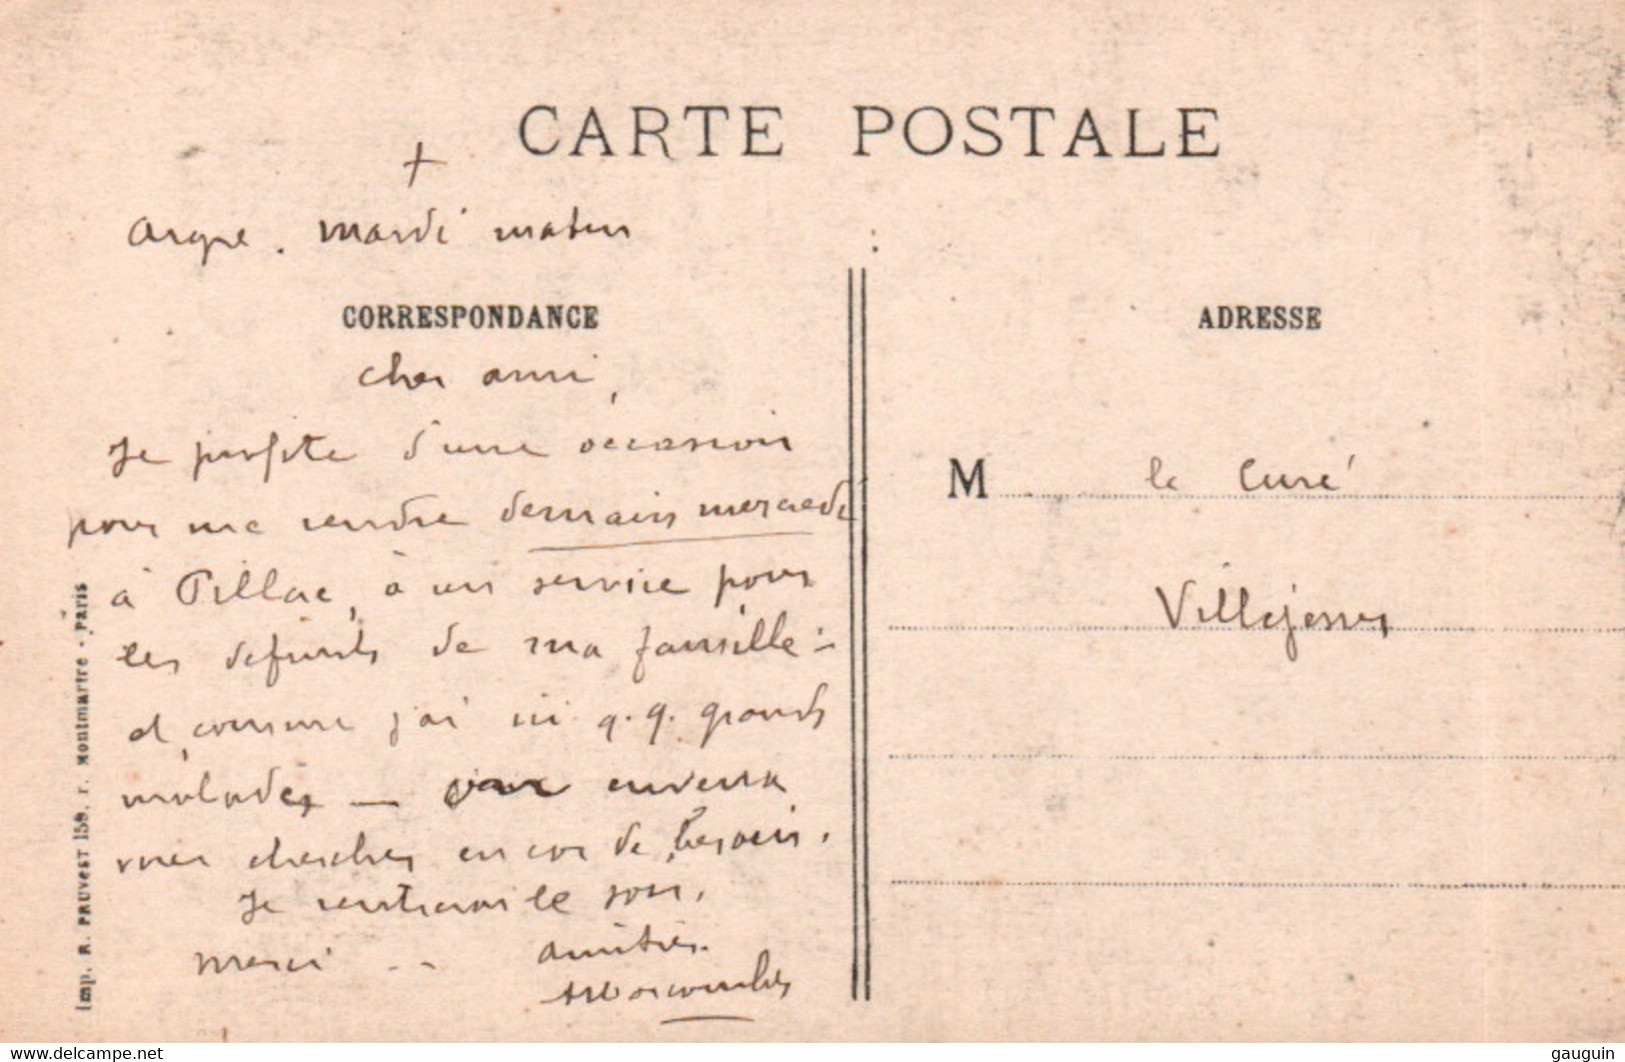 CARTE POSTALE
+
mardi matin
CORRESPONDANCE
cher ami,
Je profite d'une occasion
pour me rendre demain mercredi
à Pillac, à un service pour
les defunts de ma famille :
et comme j'ai ici q.q. grands
malades — on enverra
vous chercher en cas de besoin.
Je rentrerai le soir.
Merci - - amitiés.
ADRESSE
M le Curé
Villejesus
Imp. R. PRUVOST 159, r. Montmartre - PARIS
delcampe.net
gauguin